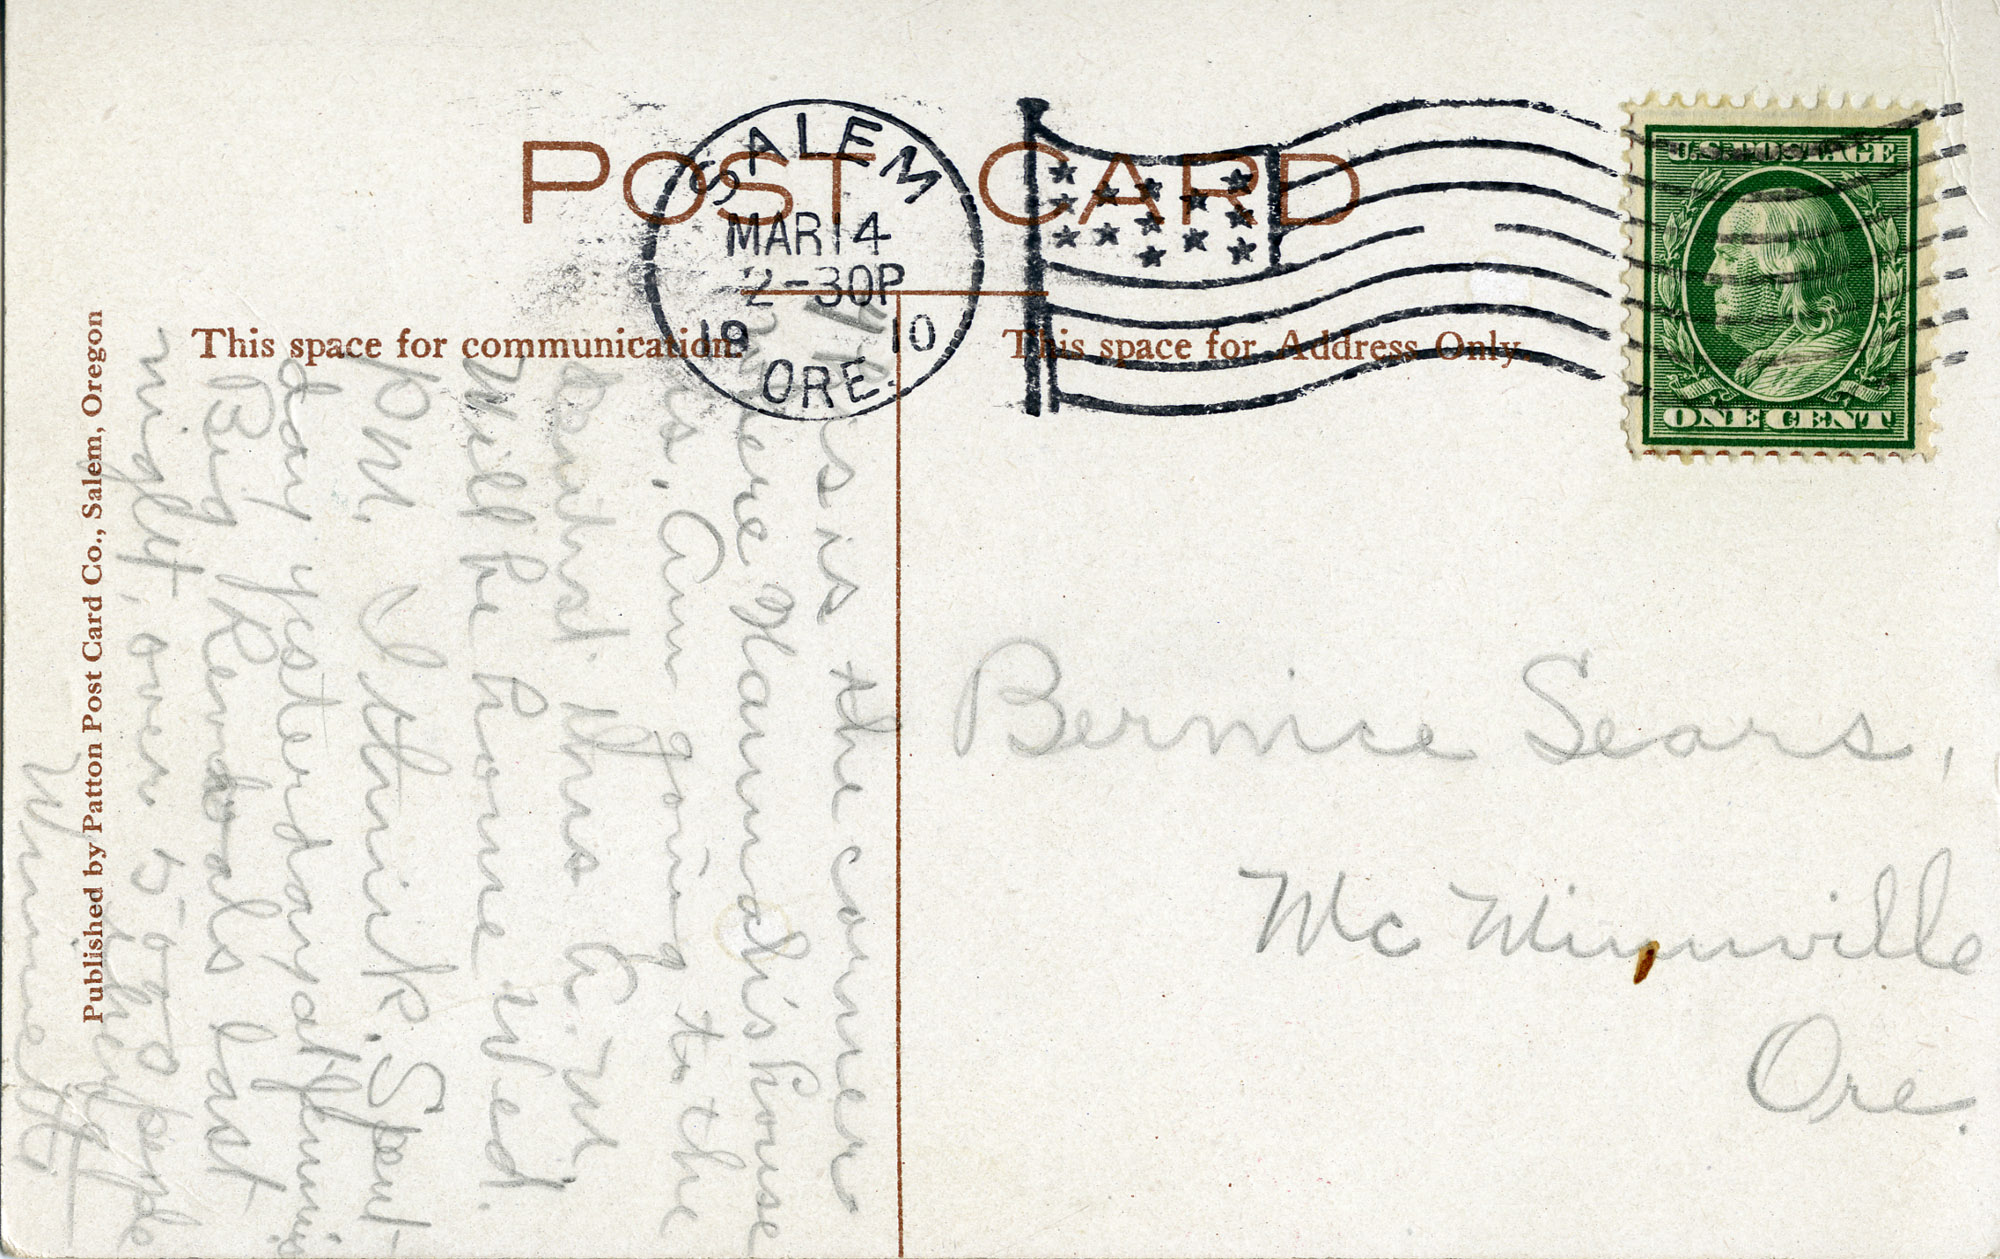 POST CARD
SALEM
MAR 14
2-30P
1910
ORE.
U.S. POSTAGE
ONE CENT
This space for communication.
This space for Address Only.
Published by Patton Post Card Co., Salem, Oregon
This is the corner
where house
is. Am going to the
Dentist this a.m.
Will be home Wed.
P.M. I think. Spent
day yesterday at
Big Revivals last
night, over 5000 people
there
Bernice Sears,
Mc Minnville
Ore.